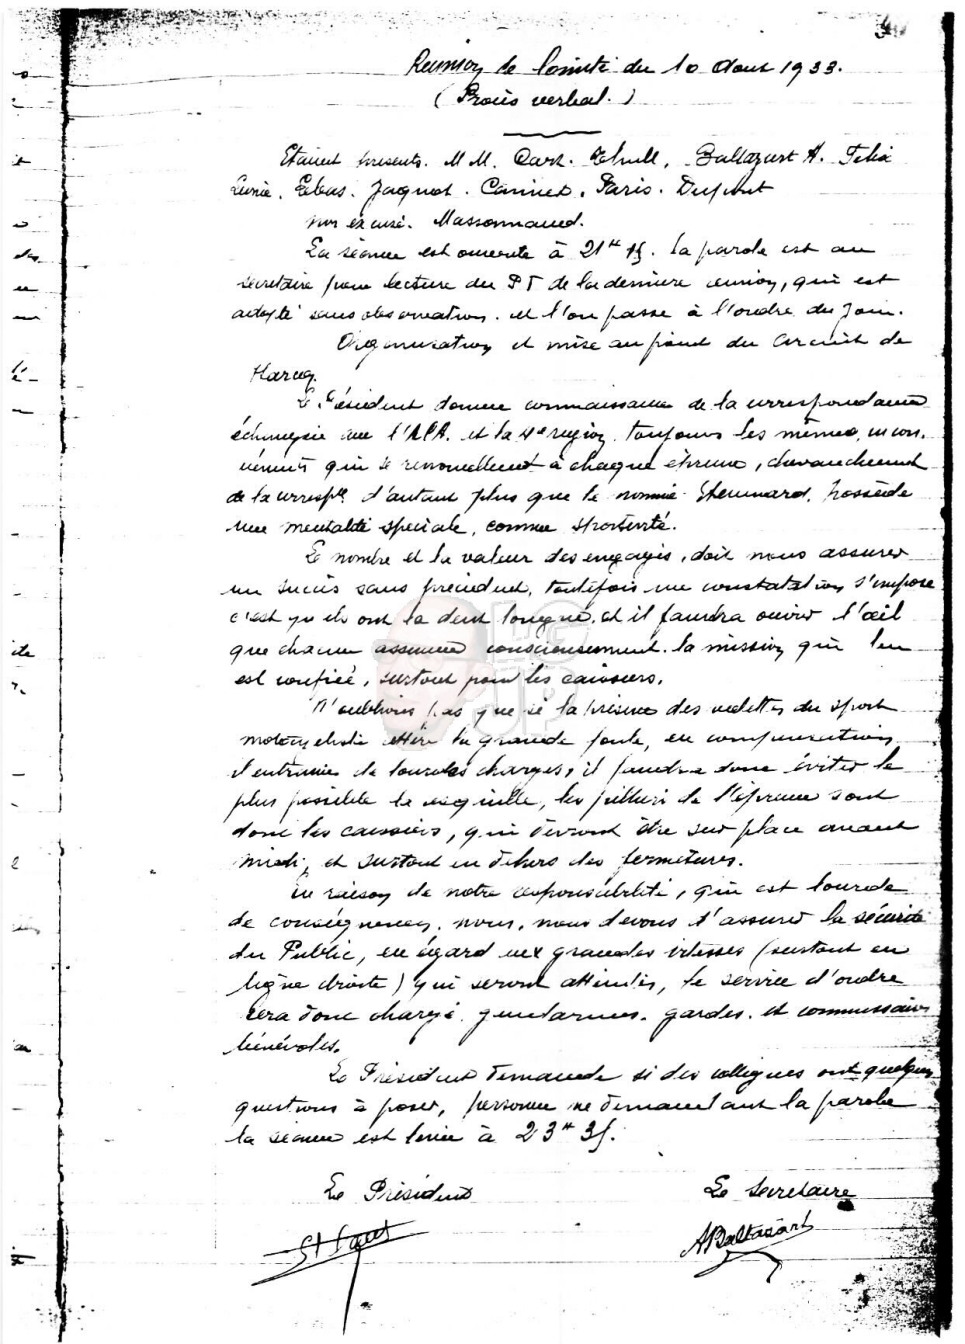 Réunion de Comité du 10 Aout 1933.
(Procès verbal.)
Etaient présents. M M. Thull, Baltazart A. Felix
Lebas. Jaquot. Paris. Dupont
non excusé. Massonnaud.
La séance est ouverte à 21 H 15. La parole est au
secretaire pour lecture du P V de la dernière reunion, qui est
adopté sans observation. et l'on passe à l'ordre du Jour.
Organisation et mise au point du Circuit de
Marcq.
Le Président donne connaissance de la correspondance
échangée avec l' et la 4e region, toujours les mêmes incon-
vénients qui se renouvellent à chaque épreuve, chevauchement
de la corresp. d'autant plus que le nommé possède
une mentalité speciale, comme sportivité.
Le nombre et la valeur des engagés, doit nous assurer
un succès sans précédent, toutefois une constatation s'impose
c'est qu'ils ont la dent longue, et il faudra ouvrir l'œil
que chacun assume consciensement la mission qui leur
est confiée, surtout pour les caissiers.
N'oublions pas que si la présence des vedettes du sport
motocycliste attire la grande foule, en compensation
d'entrainer de lourdes charges, il faudra donc éviter le
plus possible la resquille, les pilliers de l'épreuve sont
donc les caissiers, qui devront être sur place avant
midi, et surtout en dehors des fermetures.
En raison de notre responsabilité, qui est lourde
de conséquences, nous, nous devons d'assurer la sécurité
du Public, en égard aux grandes vitesses (surtout en
ligne droite) qui seront atteintes, le service d'ordre
sera donc chargé gendarmes. gardes. et commissaires
bénévoles.
Le Président demande si des collègues ont quelques
questions à poser, personne ne demandant la parole
la séance est levée à 23 H 35.
Le Président
Le Secretaire
ABaltazart
LG
JP